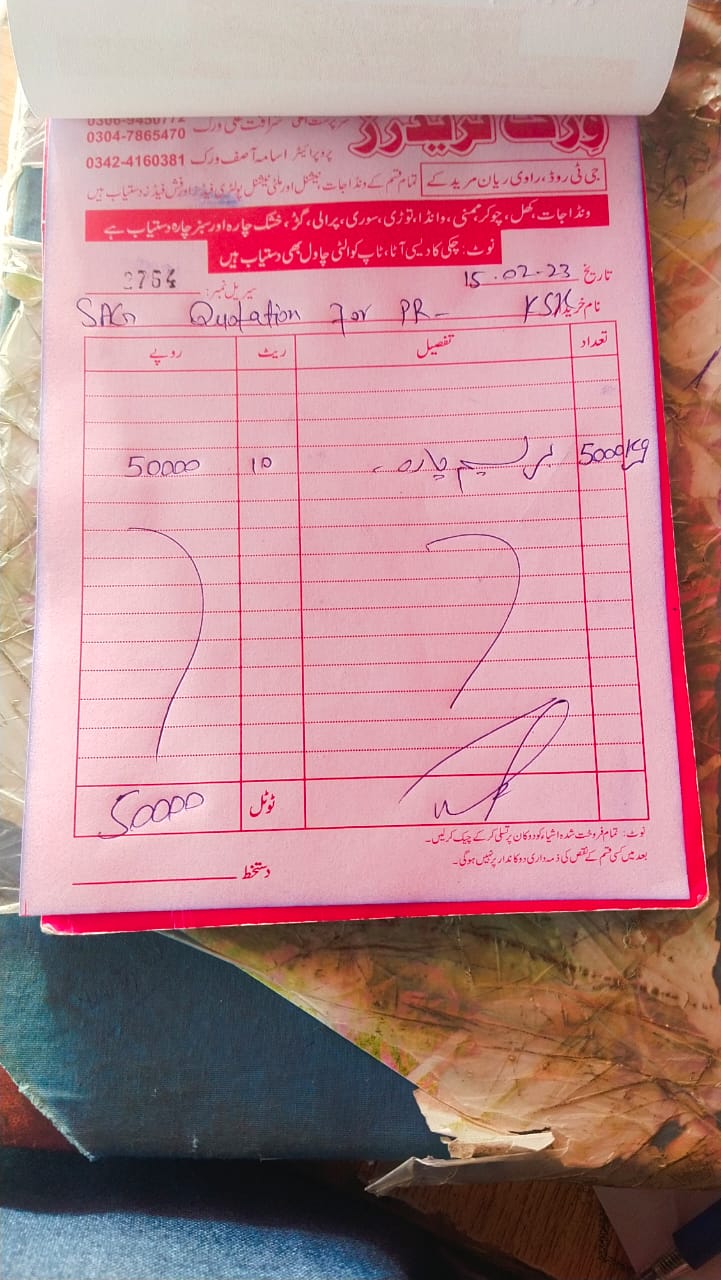 0306-9450772
ورک ٹریڈرز
0304-7865470
پروپرائیٹر اسامہ آصف ورک 0342-4160381
جی ٹی روڈ، راوی ریان مریدکے
تمام قسم کے ونڈا جات نیشنل اور ملٹی نیشنل پولٹری فیڈز اور فش فیڈز دستیاب ہیں
ونڈا جات، کھل، چوکر، مکئی، وانڈا، توڑی، سوری، پرالی، گڑ، خشک چارہ اور سبز چارہ دستیاب ہے
نوٹ: چکی کا دیسی آٹا، ٹاپ کوالٹی چاول بھی دستیاب ہیں
تاریخ 15-02-23 سیریل نمبر: 2764
نام خریدار
Quotation For PR- KSK
تعداد تفصیل ریٹ روپے
5000kg برسیم چارہ 10 50000
ٹوٹل 50000
نوٹ: تمام فروخت شدہ اشیاء کو دوکان پر تسلی کر کے چیک کر لیں۔
بعد میں کسی قسم کے نقص کی ذمہ داری دوکاندار پر نہیں ہوگی۔
دستخط